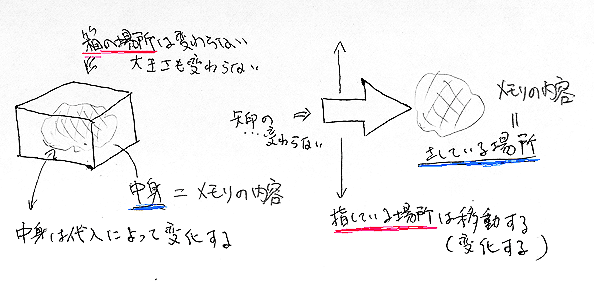 箱の場所は変わらない
大きさも変わらない
中身 = メモリの内容
中身は代入によって変化する
矢印の
変わらない
メモリの内容
=
指している場所
指している場所は移動する
(変化する)